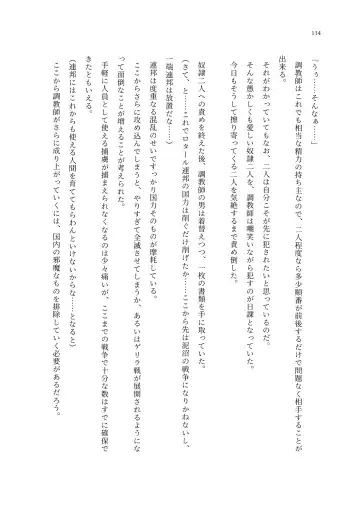 134
「うぅ……そんなぁ……」
調教師はこれでも相当な精力の持ち主なので、二人程度なら多少順番が前後するだけで問題なく相手することが
出来る。
それがわかっていてもなお、二人は自分こそが先に犯されたいと思っているのだ。
そんな愚かしくも愛しい奴隷二人を、調教師は嘲笑いながら犯すのが日課となっていた。
今日もそうして擦り寄ってくる二人を気絶するまで責め倒した。
奴隷二人への責めを終えた後、調教師の男は着替えつつ、一枚の書類を手に取っていた。
(さて、と……これでロタール連邦の国力は削ぐだけ削げたか……ここから先は泥沼の戦争になりかねないし、
一端連邦は放置だな……)
連邦は度重なる混乱のせいですっかり国力そのものが摩耗している。
ここからさらに攻め込んでしまうと、やりすぎて全滅させてしまうか、あるいはゲリラ戦が展開されるようにな
って面倒なことが増えることが考えられた。
手軽に人員として使える捕虜が捕まえられなくなるのは少々痛いが、ここまでの戦争で十分な数はすでに確保で
きたともいえる。
(連邦にはこれからも使える人間を育ててもらわんといけないからな……となると)
ここから調教師がさらに成り上がっていくには、国内の邪魔なものを排除していく必要があるだろう。